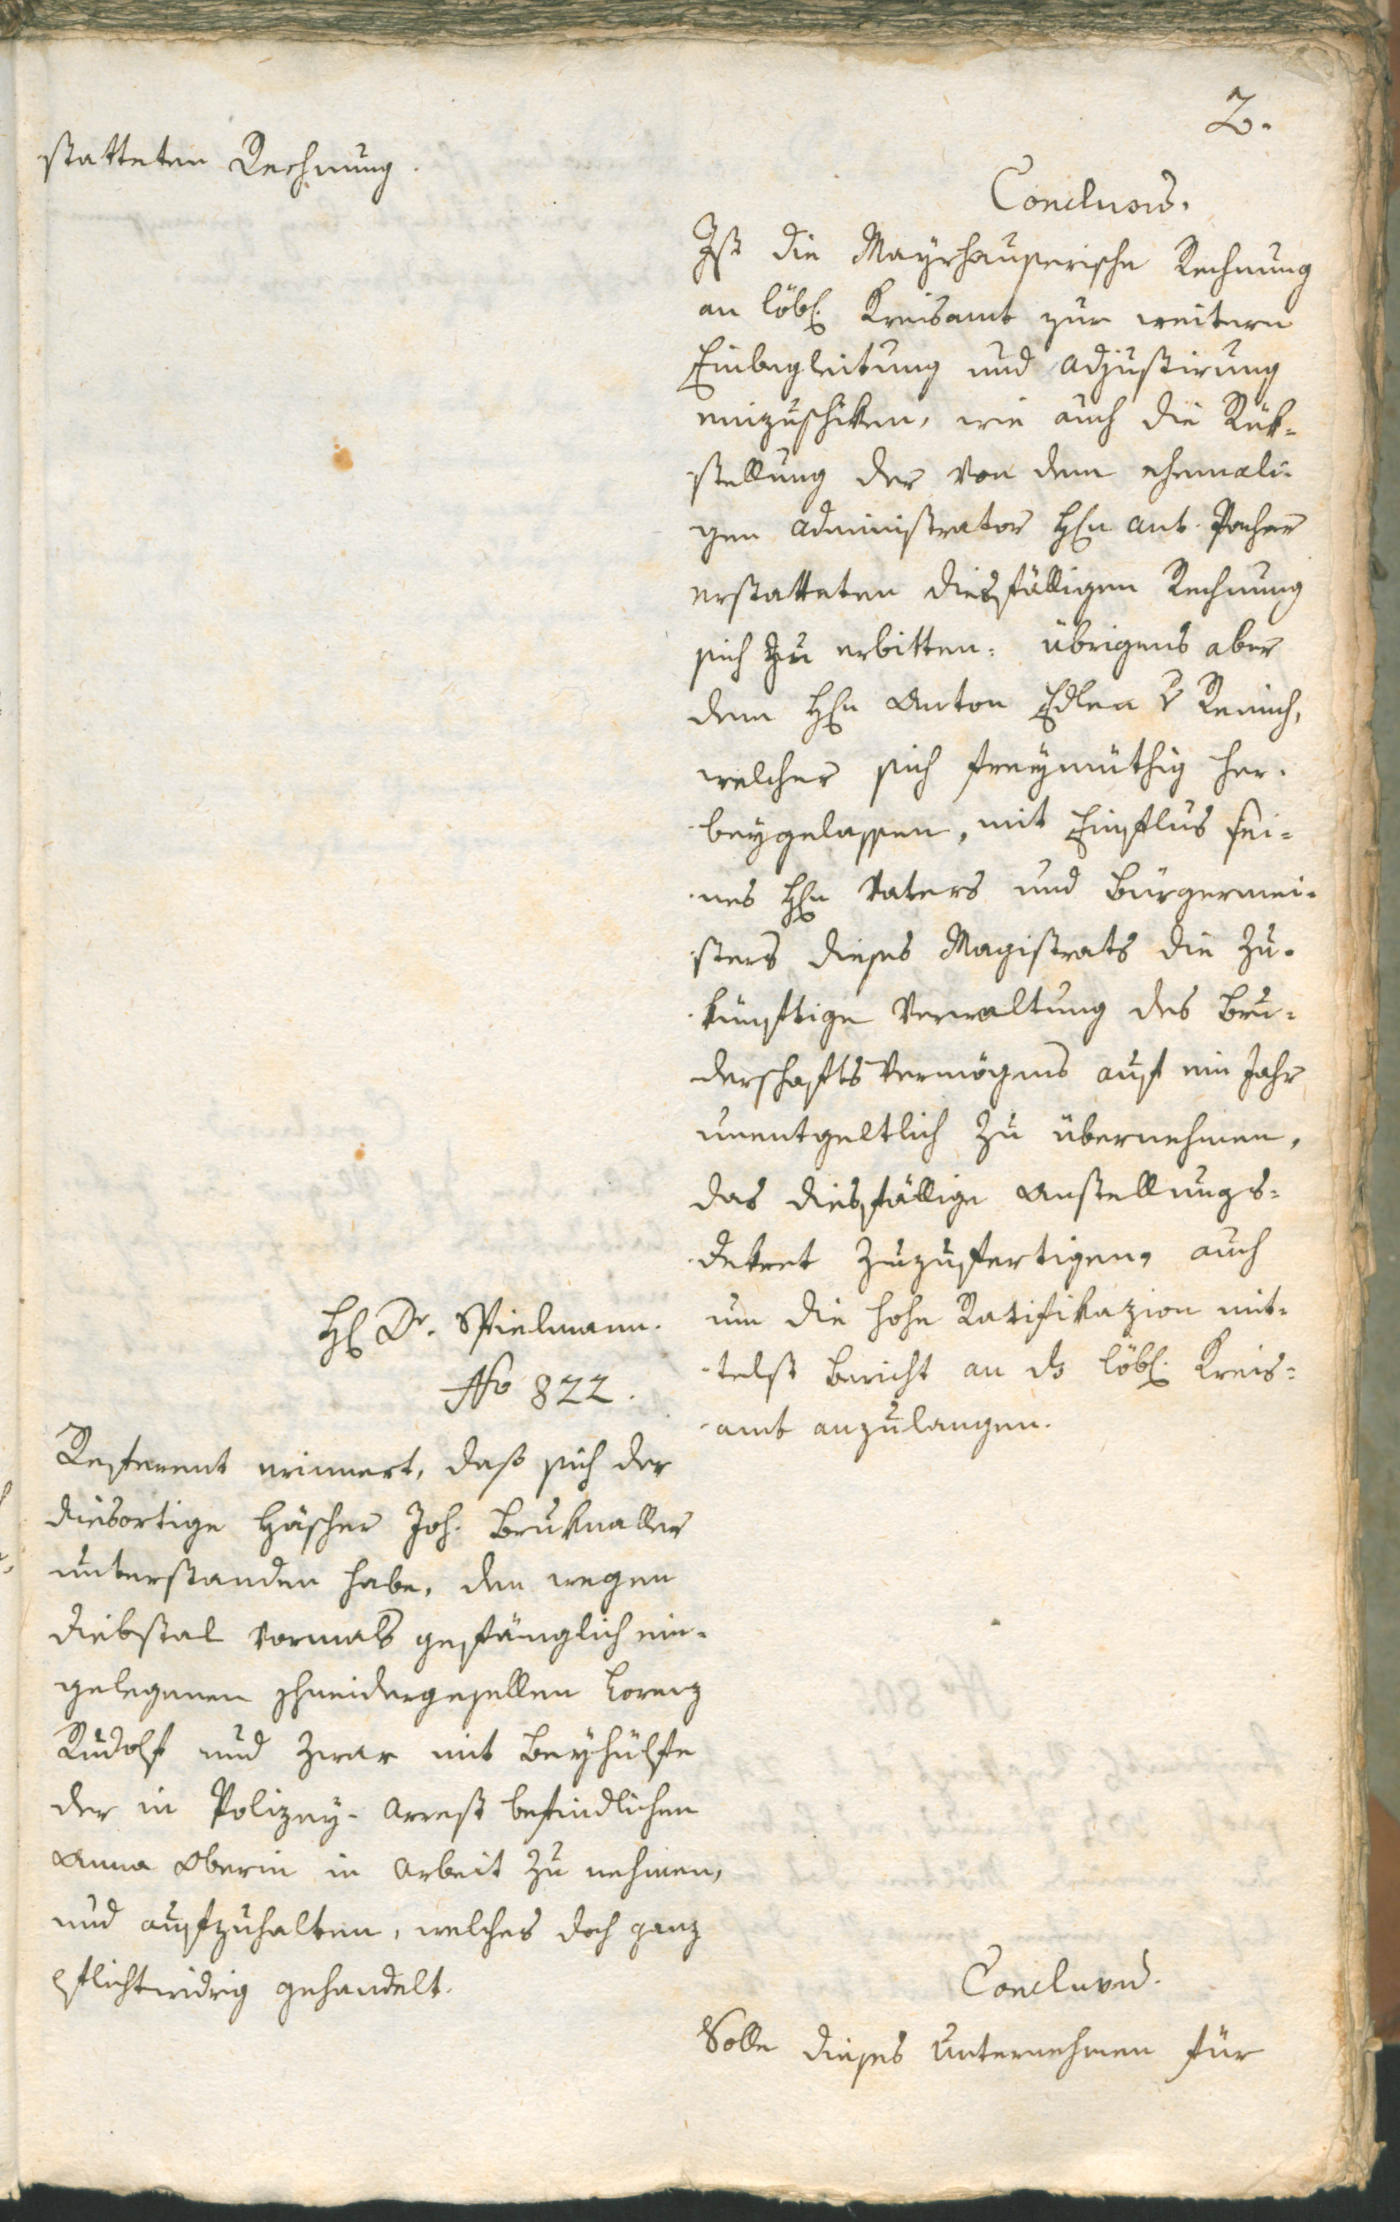 2.
statteten Rechnung.
Conclusum.
Ist die Mayrhauserische Rechnung
an löbl. Kreisamt zur weitern
Einbegleitung und Adjustirung
einzuschiken, wie auch die Rük-
stellung der von dem ehemali-
gen Administrator H̄n Ant. Pacher
erstatteten diesfälligen Rechnung
sich zu erbitten: übrigens aber
dem H̄n Anton Edlen v Remich,
welcher sich freymüthig her-
beygelassen, mit Einflus sei-
nes H̄n Vaters und Bürgermei-
sters dieses Magistrats die zu-
künftige Verwaltung des Bru-
derschafts Vermögens auf ein Jahr
unentgeltlich zu übernehmen,
das diesfällige Anstellungs-
dekret zuzufertigen, auch
um die hohe Ratifikazion mit-
telst Bericht an ds löbl. Kreis-
amt anzulangen.
H. Dr. Spielmann.
No 822.
Referent erinnert, daß sich der
diesortige Häscher Joh. Bruknaller
unterstanden habe, den wegen
Diebstal vormals gefänglich ein-
gelegenen Schneidergesellen Lorenz
Rudolf und zwar mit Beyhülfe
der in Polizey-Arrest befindlichen
Anna Oberin in Arbeit zu nehmen,
und aufzuhalten, welches doch ganz
pflichtwidrig gehandelt.
Conclusum.
Solle dieses Unternehmen für